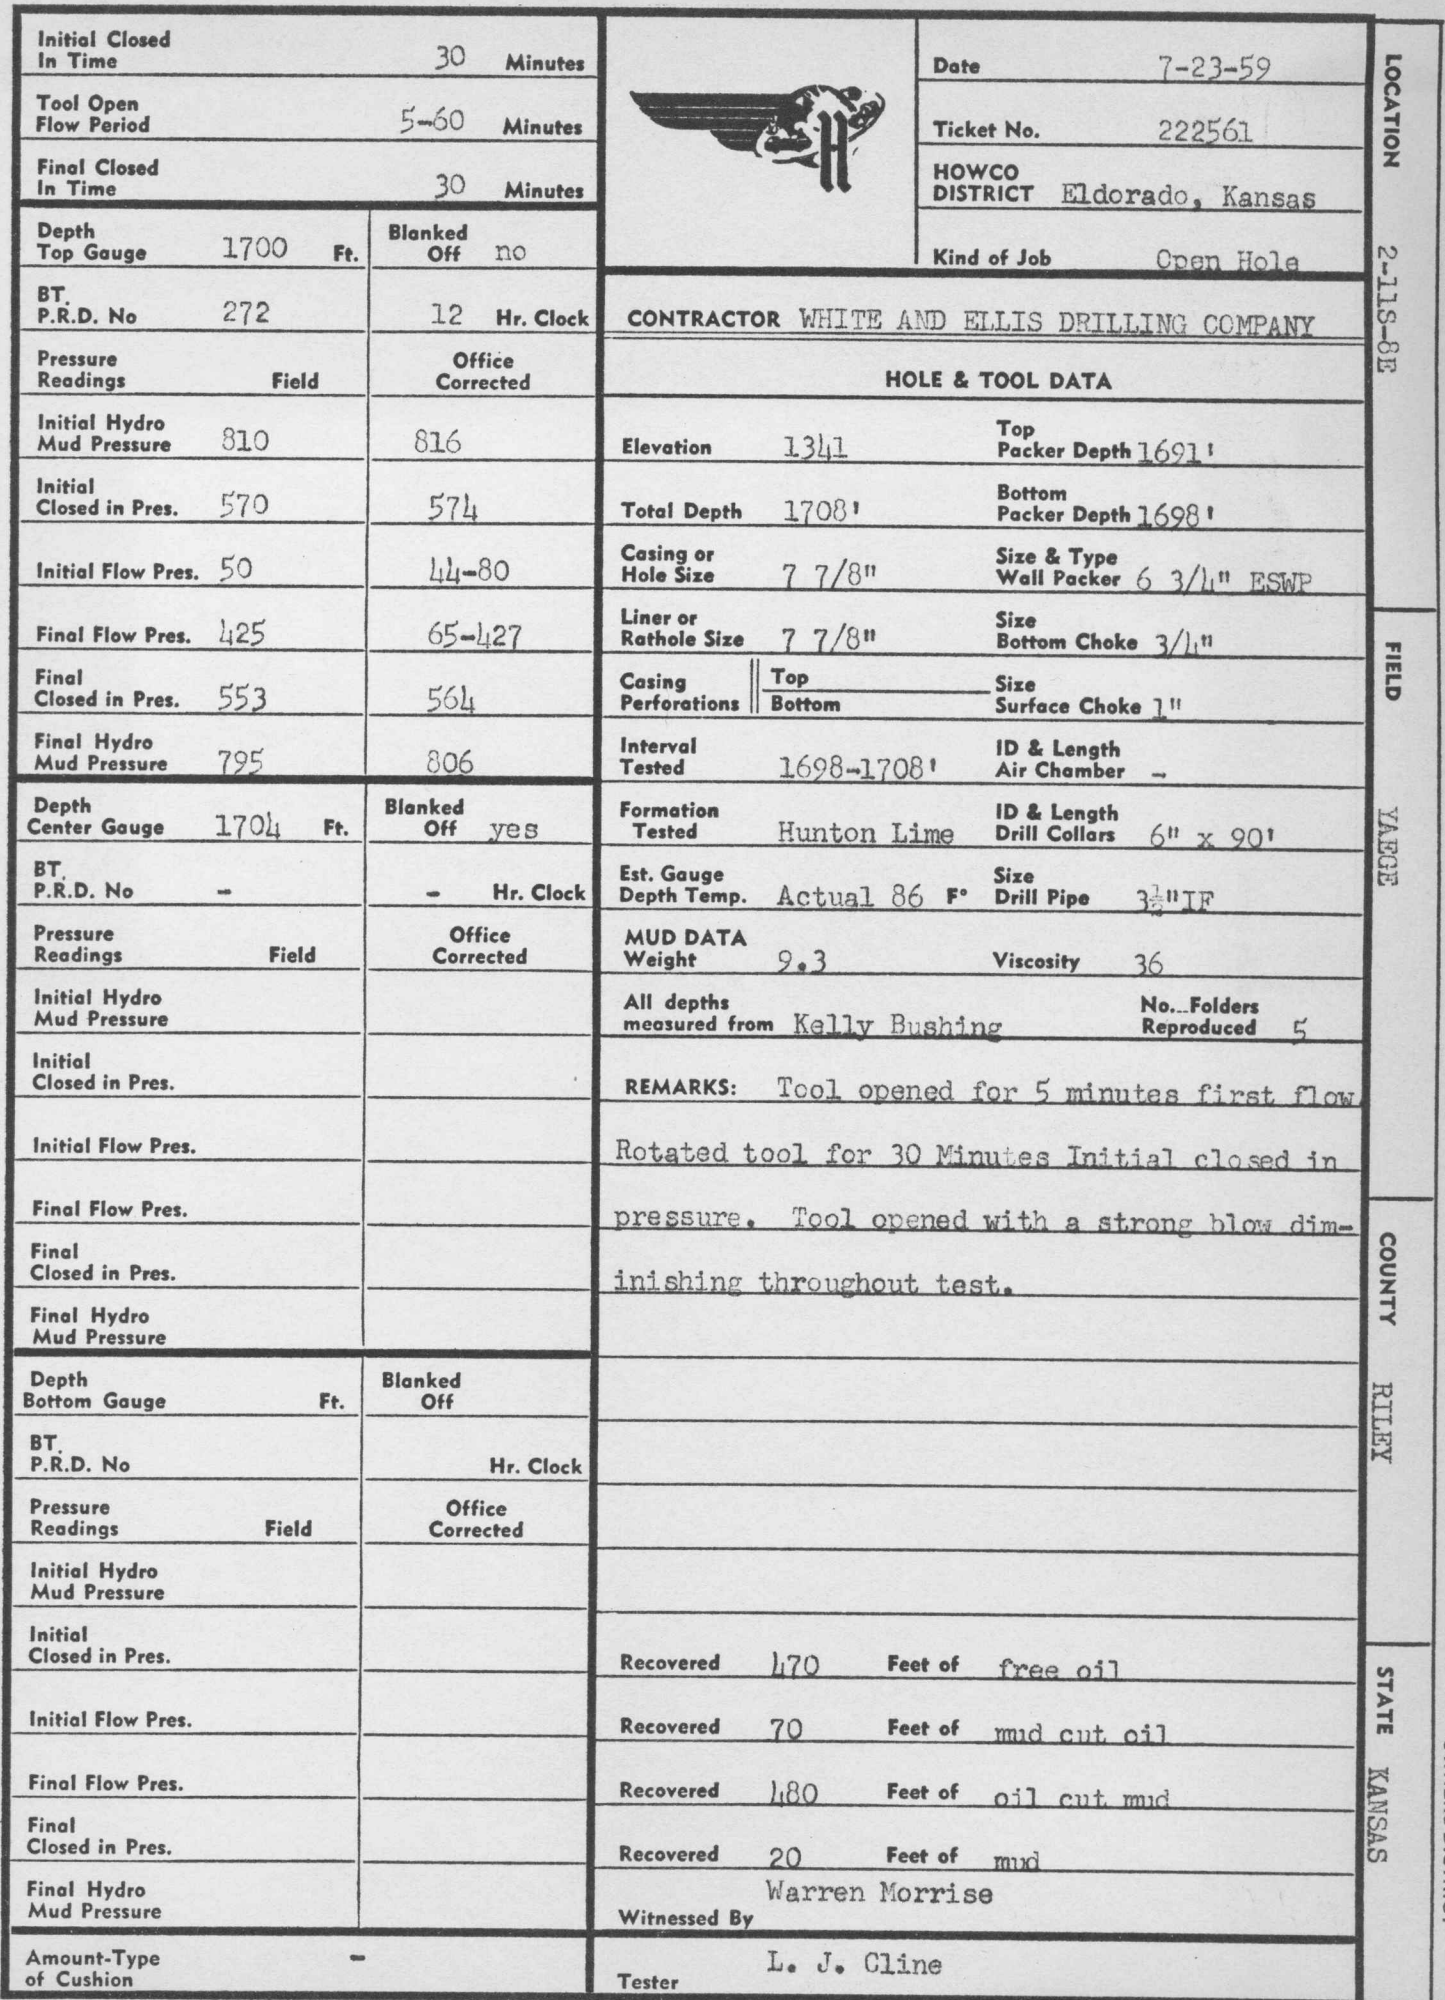 Initial Closed
In Time 30 Minutes
Tool Open
Flow Period 5-60 Minutes
Final Closed
In Time 30 Minutes
Depth
Top Gauge 1700 Ft.
Blanked
Off no
BT.
P.R.D. No 272
12 Hr. Clock
Pressure
Readings Field
Office
Corrected
Initial Hydro
Mud Pressure 810 816
Initial
Closed in Pres. 570 574
Initial Flow Pres. 50 44-80
Final Flow Pres. 425 65-427
Final
Closed in Pres. 553 564
Final Hydro
Mud Pressure 795 806
Depth
Center Gauge 1704 Ft.
Blanked
Off yes
BT.
P.R.D. No -
- Hr. Clock
Pressure
Readings Field
Office
Corrected
Initial Hydro
Mud Pressure
Initial
Closed in Pres.
Initial Flow Pres.
Final Flow Pres.
Final
Closed in Pres.
Final Hydro
Mud Pressure
Depth
Bottom Gauge Ft.
Blanked
Off
BT.
P.R.D. No
Hr. Clock
Pressure
Readings Field
Office
Corrected
Initial Hydro
Mud Pressure
Initial
Closed in Pres.
Initial Flow Pres.
Final Flow Pres.
Final
Closed in Pres.
Final Hydro
Mud Pressure
Amount-Type
of Cushion -
H
Date 7-23-59
Ticket No. 222561
HOWCO
DISTRICT Eldorado, Kansas
Kind of Job Open Hole
CONTRACTOR WHITE AND ELLIS DRILLING COMPANY
HOLE & TOOL DATA
Elevation 1341
Top
Packer Depth 1691'
Total Depth 1708'
Bottom
Packer Depth 1698'
Casing or
Hole Size 7 7/8"
Size & Type
Wall Packer 6 3/4" ESWP
Liner or
Rathole Size 7 7/8"
Size
Bottom Choke 3/4"
Casing
Perforations
Top
Bottom
Size
Surface Choke 1"
Interval
Tested 1698-1708'
ID & Length
Air Chamber -
Formation
Tested Hunton Lime
ID & Length
Drill Collars 6" x 90'
Est. Gauge
Depth Temp. Actual 86 F°
Size
Drill Pipe 3½"IF
MUD DATA
Weight 9.3
Viscosity 36
All depths
measured from Kelly Bushing
No...Folders
Reproduced 5
REMARKS: Tool opened for 5 minutes first flow.
Rotated tool for 30 Minutes Initial closed in
pressure. Tool opened with a strong blow dim-
inishing throughout test.
Recovered 470 Feet of free oil
Recovered 70 Feet of mud cut oil
Recovered 480 Feet of oil cut mud
Recovered 20 Feet of mud
Warren Morrise
Witnessed By
L. J. Cline
Tester
LOCATION 2-11S-8E
FIELD YAEGE
COUNTY RILEY
STATE KANSAS